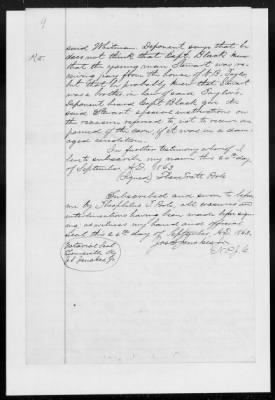 9
said Whitman. Deponent says that he
does not think that Capt. Black knew
that the young man Stewart was re-
ceiving pay from the house of W.B. Taylor
but that he probably knew that Stewart
was a brother in law of said Taylor.
Deponent heard Capt. Black give the
said Stewart special instructions on
the occasion referred to not to receive any
part of the corn if it was in a dam-
aged condition.
In further testimony whereof I
hereto subscribe my name this 26th day
of September A.D. 1863.
(Signed)
Subscribed and sworn to before
me by Theophilus T. all erasures and
interlineations having been made before sign-
ing, as witness my hand and official
Seal this 26th day of September A.D. 1863.
Notarial Seal